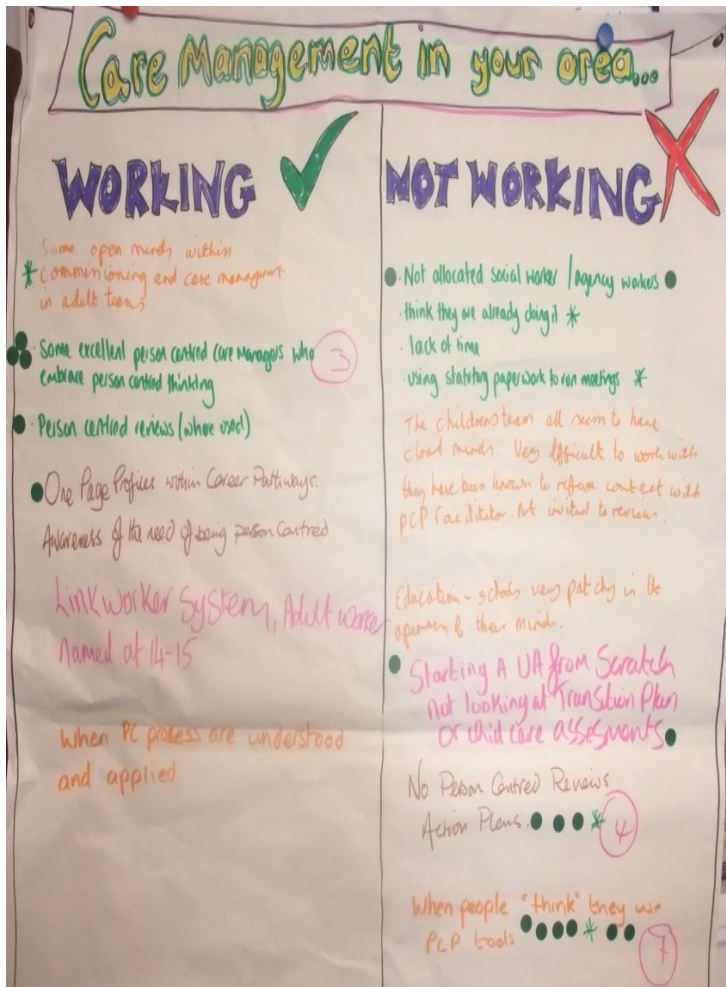 Care Management in your area...
WORKING
Some open minds within
* commissioning and care managment
in adult teams
Some excellent person centred care managers who
embrace person centred thinking
3
• Person centred reviews (where used)
One Page Profiles within Career Pathways.
Awareness of the need of being person Centred
Linkworker System, Adult worker
named at 14-15
When PC process are understood
and applied
NOT WORKING
• Not allocated social worker / agency workers
• think they are already doing it *
• lack of time
• using statutory paperwork to run meetings *
The childrens team all seem to have
closed minds. Very difficult to work with
they have been known to refuse contact with
PCP facilitator. Not invited to reviews.
Education - schools very patchy in the
openness of their minds.
Starting A UA from Scratch
not looking at Transition Plan
or child care assesments
No Person Centred Reviews
Action Plans. *
4
When people "think" they use
PCP tools *
7